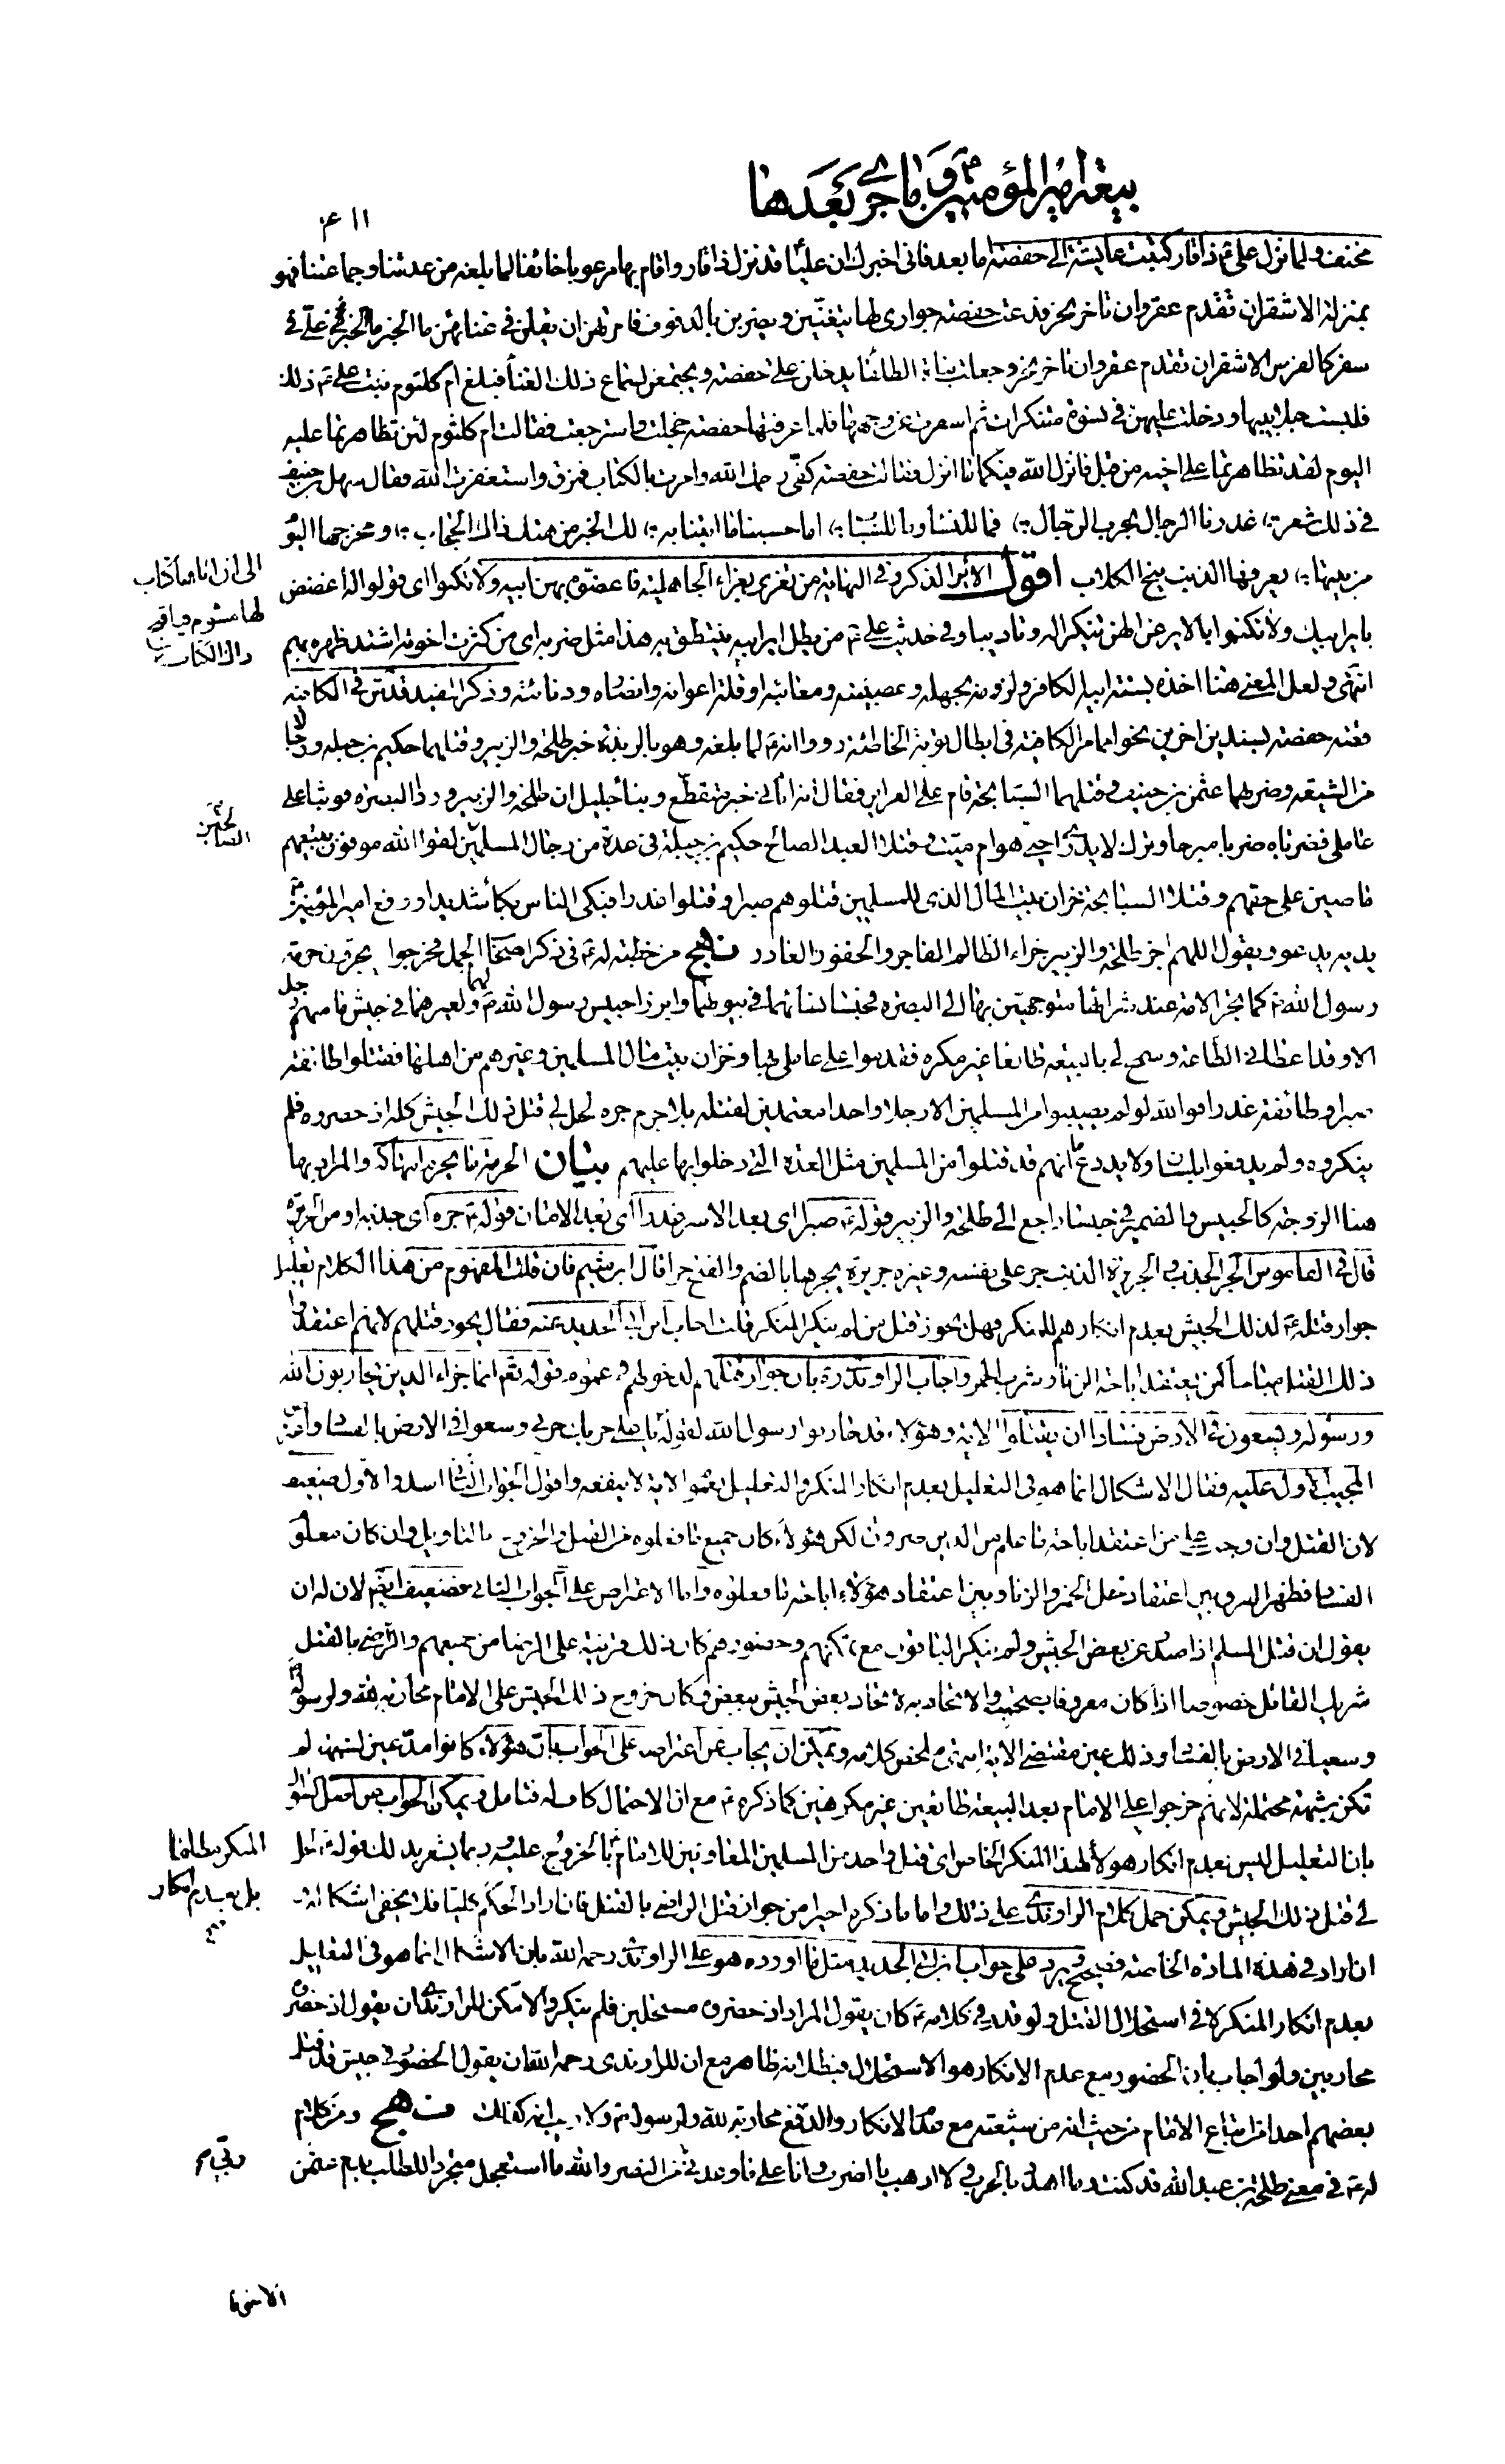 بيعة امير المؤمنين ع و ما جرى بعدها
مخنف ولما نزل علي ع ذاقار كتبت عايشة الى حفصة اما بعد فاني اخبرك ان عليا قد نزل ذاقار واقام بها مرعوبا خائفا لما بلغه من عدتنا وجماعتنا فهو
بمنزلة الاشقر ان تقدم عقر وان تاخر نحر فدعت حفصة جواري لها يتغنين ويضربن بالدفوف فامرتهن ان يقلن في غنائهن ما الخبر ما الخبر علي في
سفر كالفرس الاشقر ان تقدم عقر وان تاخر نحر وجعلت بنات الطلقا يدخلن على حفصة ويجتمعن لسماع ذلك الغنا فبلغ ام كلثوم بنت علي ع ذلك
فلبست جلابيبها ودخلت عليهن في نسوة متنكرات ثم اسفرت عن وجهها فلما عرفتها حفصة خجلت واسترجعت فقالت ام كلثوم لئن تظاهرتما عليه
اليوم لقد تظاهرتما على اخيه من قبل فانزل الله فيكما ما انزل فقالت حفصة كفي رحمك الله وامرت بالكتاب فمزق واستغفرت الله فقال سهل بن حنيف
في ذلك شعر عذرنا الرجال بحرب الرجال فما للنسا وما للسباب اما حسبنا ما اتينا به لك الخير من هتك ذاك الحجاب ومخرجها اليوم
من بيتها يعرفها الذنب نبح الكلاب اقول الأير الذكر وفي النهاية من تعزى بعزاء الجاهلية فاعضوه بهن ابيه ولا تكنوا اى قولوا له اعضض
الى ان اتاها كتاب
لها مشوم فيا قبح
ذاك الكتاب
باير ابيك ولا تكنوا بالاير عن الهن تنكيرا له وتاديبا وفي حديث علي ع من يطل اير ابيه ينتطق به هذا مثل ضربه اى من كثرت اخوته اشتد ظهره بهم
انتهى ولعل المعنى هنا اخذه بسنة ابيه الكافر ولزومه بجهله وعصبيته ومعائبه او قلة اعوانه وانصاره ودنائته وذكر المفيد قدس في الكافئة
قصة حفصة بسندين اخرين نحوا مما مر الكافئة في ابطال توبة الخاطئة رووا انه ع لما بلغه وهو بالربذة خبر طلحة والزبير وقتلهما حكيم بن جبلة ورجالا
من الشيعة وضربهما عثمن بن حنيف وقتلهما السبابجة قام على الغراير فقال انه اتاني خبر متفظع ونبا جليل ان طلحة والزبير وردا البصرة فوثبا على
عاملي فضرباه ضربا مبرحا وترك لا يدرى احي هو ام ميت وقتلا العبد الصالح حكيم بن جبلة في عدة من رجال المسلمين لقوا الله موفون ببيعتهم
الصالحين
ماضين على حقهم وقتلا السبابجة خزان بيت المال الذى للمسلمين قتلوهم صبرا وقتلوا غدرا فبكى الناس بكا شديدا ورفع امير المؤمنين ع
يديه يدعو ويقول اللهم اجز طلحة والزبير جزاء الظالم الفاجر والخفور الغادر نهج من خطبة له ع في ذكر اصحاب الجمل فخرجوا يجرون حرمة
رسول الله ص كما تجر الامة عند شرائها متوجهين بها الى البصرة فحبسا نساءهما في بيوتهما وابرزا حبيس رسول الله ص لهما ولغيرهما في جيش ما منهم رجل
الا وقد اعطاني الطاعة وسمح لي بالبيعة طائعا غير مكره فقدموا على عاملي بها وخزان بيت مال المسلمين وغيرهم من اهلها فقتلوا طائفة
صبرا وطائفة غدرا فوالله لو لم يصيبوا من المسلمين الا رجلا واحدا معتمدين لقتله بلا جرم جره لحل لي قتل ذلك الجيش كله اذ حضروه فلم
ينكروه ولم يدفعوا بلسان ولا يد دع ما انهم قد قتلوا من المسلمين مثل العدة التي دخلوا بها عليهم بيان الحرمة ما يحرم انتهاكه والمراد بها
هنا الزوجة كالحبيس والضمير في حبسا راجع الى طلحة والزبير قوله ع صبرا اى بعد الاسر وغدرا اى بعد الامان قوله ع جره اى جذبه او من الجريرة
قال في القاموس الجر الجذب والجريرة الذنب جر على نفسه وغيره جريرة يجرها بالضم والفتح جرا قال ابن ميثم فان قلت المفهوم من هذا الكلام تعليل
جواز قتله ع لذلك الجيش بعدم انكارهم للمنكر فهل يجوز قتل من لم ينكر المنكر قلت اجاب ابن ابى الحديد عنه فقال يجوز قتلهم لانهم اعتقدوا
ذلك القتل مباحا كمن يعتقد اباحة الزنا وشرب الخمر واجاب الراوندى ره بان جواز قتلهم لدخولهم في عموم قوله تعم انما جزاء الذين يحاربون الله
ورسوله ويسعون في الارض فسادا ان يقتلوا الاية وهؤلاء قد حاربوا رسول الله لقوله ص يا علي حربك حربي وسعوا في الارض بالفساد واعترض
المجيب الاول عليه فقال الاشكال انما هو في التعليل بعدم انكار المنكر والتعليل بعموم الاية لا ينفعه واقول الجواب الثاني اسد والاول ضعيف
لان القتل وان وجب على من اعتقد اباحة ما علم من الدين ضرورة لكن هؤلاء كان جميع ما فعلوه من القتل والخروج بالتاويل وان كان معلوم
الفساد فظهر الفرق بين اعتقاد حل الخمر والزنا وبين اعتقاد هؤلاء اباحة ما فعلوه واما الاعتراض على الجواب الثاني فضعيف ايضم لان له ان
يقول ان قتل المسلم اذا صدر عن بعض الجيش ولم ينكر الباقون مع تمكنهم وحضورهم كان ذلك قرينة على الرضا من جميعهم والراضي بالقتل
شريك القاتل خصوصا اذا كان معروفا بصحبته والاتحاد به لاتحاد بعض الجيش ببعض وكان خروج ذلك الجيش على الامام محاربة لله ولرسوله
وسعيا في الارض بالفساد وذلك عين مقتضى الاية انتهى ملخص كلامه ويمكن ان يجاب عن اعتراضه على الجواب بان هؤلاء كانوا مدعين لشبهة لم
تكن شبهة محتملة لانهم خرجوا على الامام بعد البيعة طائعين غير مكرهين كما ذكره ع مع ان الاحتمال كاف له فتامل ويمكن الجواب عن اصل السؤال
بان التعليل ليس بعدم انكار هؤلاء لهذا المنكر الخاص اى قتل واحد من المسلمين المعاونين للامام بالخروج عليه وربما يشعر بذلك قوله ع لحل
المنكر مطلقا
بل بعدم انكار
لي قتل ذلك الجيش ويمكن حمل كلام الراوندى على ذلك واما ما ذكره اخيرا من جواز قتل الراضي بالقتل فان اراد الحكم كليا فلا يخفى اشكاله وان
ان اراد في هذه المادة الخاصة فصحيح ويرد على جواب ابن ابي الحديد مثل ما اورده هو على الراوندى رحمه الله بان الاشكال انما هو في التعليل
بعدم انكار المنكر لا في استحلال القتل ولو قدر في كلامه ع كان يقول المراد اذ حضروه مستحلين فلم ينكروا لامكن للراوندى ان يقول اذ حضروه
محاربين ولو اجاب بان الحضور مع عدم الانكار هو الاستحلال فبطلانه ظاهر مع ان للراوندى رحمه الله ان يقول الحضور في جيش قد قتل
بعضهم احدا من اتباع الامام من حيث انه من شيعته مع عدم الانكار والدفع محاربة لله ولرسوله ص ولا ريب انه كذلك نهج ومن كلام
له ع في معنى طلحة بن عبد الله قد كنت وما اهدد بالحرب ولا ارهب بالضرب وانا على ما وعدني من النصر والله ما استعجل متجردا للطلب بدم عثمن
ربي
الا خوفا